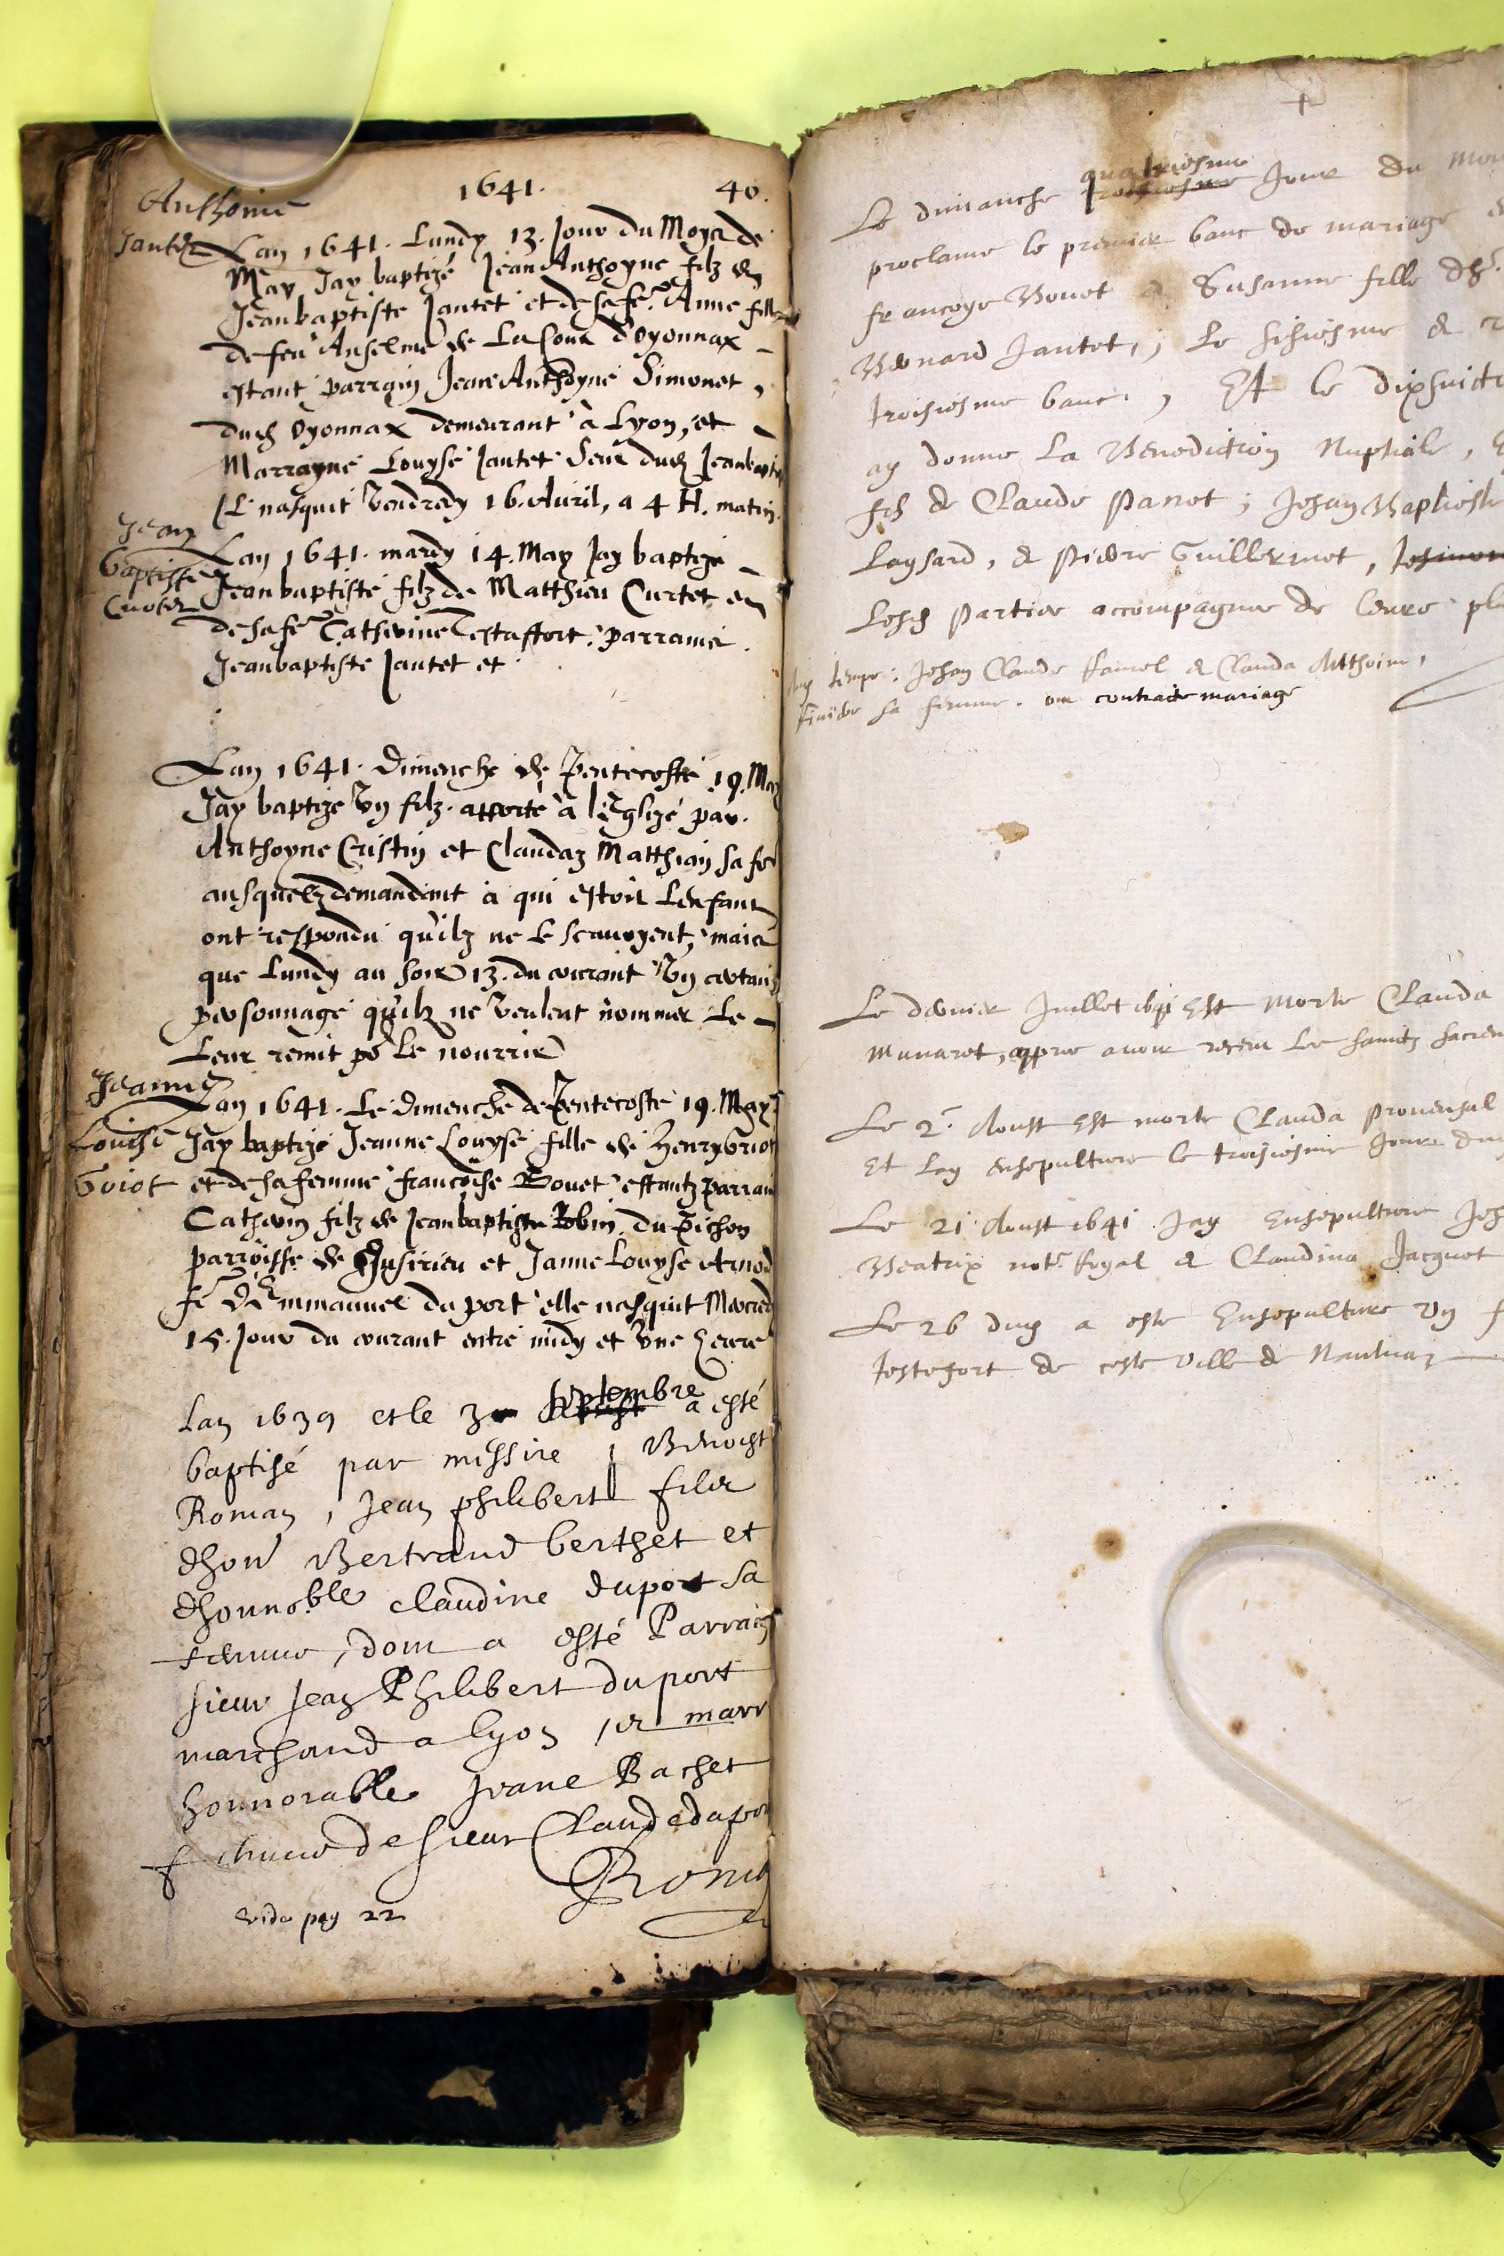 1641. 40.
Anthoine
Jantet
Lan 1641. Lundy 13. Jour du Moys de
May Jay baptizé Jean Anthoyne filz de
Jeanbaptiste Jantet et de sa fe. Anne fille
de feu Anselme de Lacour d'Oyonnax
estant parrain Jean Anthoyne Simonet,
dud Oyonnax demeurant à Lyon, et
Marrayne Louyse Jantet seur dud Jeanbaptis
Il nasquit Vendredy 16. Auril, a 4 H. matin.
Jean
baptiste
Curtet
Lan 1641. mardy 14. May Jay baptizé
Jeanbaptiste filz de Matthieu Curtet et
de sa fe Catherine Testaffort. parrains
Jeanbaptiste Jantet et
Lan 1641. Dimenche de Pentecoste 19. May
Jay baptizé Vn filz. apporté à l'Eglizé par.
Anthoyne Cristin et Claudaz Matthian sa fe
ausquelz demandant à qui estoit Lenfant
ont respondu quilz ne le scauoyent, mais
que Lundy au soir 13. du courant Vn certain
personnage quilz ne Veulent nommer Le
Leur remit po Le nourrir
Jeanne
Louise
Guiot
Lan 1641. Le dimenche de Pentecoste 19. May
Jay baptizé Jeanne Louyse fille de Henry Guiot
et de sa femme francoise Bouet estantz parrain
Catherin filz de Jeanbaptiste Robin du Pichon
parroisse de Insirieu et Janne Louyse
fe D'Emmanuel du port elle nasquit Mecred
15. Jour du courant entre midy et Vne heure
Lan 1639 et le 3 Septembre a esté
baptisé par missire, Benoist
Roman, Jean philibert fils
dhon Bertrand berthet et
dhonnoble claudine duport sa
femme, dom a esté Parrain
sieur Jean Philibert duport
marchand a lyon, et marr
honnorable Jeane Bachet
femme de sieur Claude dupor
Roman
vide pag 22
Le dimanche quatriesme Jour du Moy
proclame le premier banc de mariage
francoys Bouet & Susanne fille d
Bernard Jantet, Le sisiesme &
troisiesme banc, Et le dixhuict
ay donne La Benediction Nuptiale,
filz de Claude Panet; Jehan Baptiste
Laysard, & Pierre Guillermot,
Lesd Parties accompagnes de leurs
temps: Jehan Claude Ramel & Clauda Anthoine,
sa femme. ont contracte mariage
Le dernier Juillet 1641 Est Morte Clauda
Munaret, appres auoir receu les sainctz sacrem
Le 2. Aoust Est morte Clauda Prouensal
Et lay ensepulturee le troisiesme Jour dud
Le 21 Aoust 1641 Jay Ensepulture Jeh
Beatrix not Royal & Claudina Jacquet
Le 26 dud a este Ensepulture Vn f
Testefort de ceste Ville de Nantua